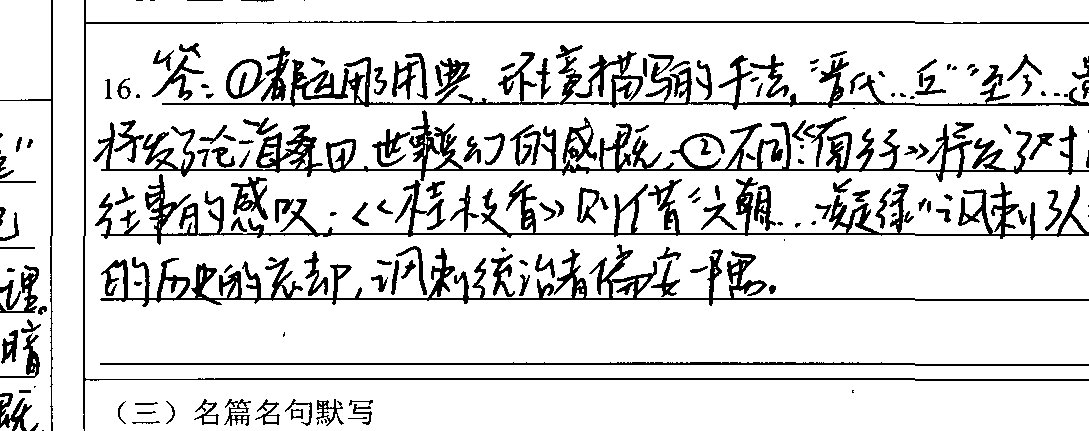 16. 答：①都运用了用典、环境描写的手法，“晋代…丘”“至今…
抒发了沧海桑田、世事变幻的感慨；②不同：《南乡子》抒发了对
往事的感叹；《桂枝香》则借“六朝…凝绿”讽刺了人
的历史的忘却，讽刺统治者偏安一隅。
（三）名篇名句默写
理。
暗
慨